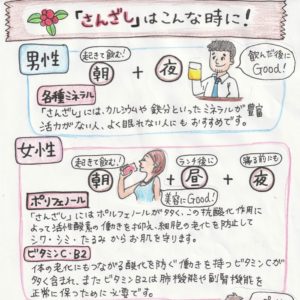 「さんざし」はこんな時に!
男性
起きて飲む!
朝 + 夜
飲んだ後にGood!
各種ミネラル
「さんざし」には、カルシウムや鉄分といったミネラルが豊富
活力がない人、よく眠れない人にもおすすめです。
女性
起きて飲む!
ランチ後に
寝る前にも
朝 + 昼 + 夜
美容にGood!
ポリフェノール
「さんざし」にはポルフェノールが多く、この抗酸化作用に
よって活性酸素の働きを抑え、細胞の老化を防止して
シワ・シミ・たるみからお肌を守ります。
ビタミンC・B2
体の老化にもつながる酸化を防ぐ働きを持つビタミンCが
多く含まれ、またビタミンB2は肺機能や副腎機能を
正常に保つために必要です。